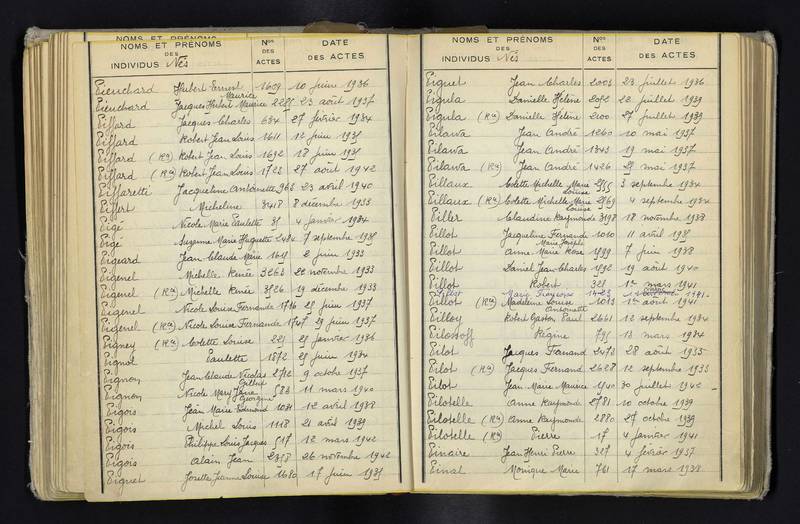 NOMS ET PRÉNOMS
NOMS ET PRÉNOMS DES INDIVIDUS Nés Nos DES ACTES DATE DES ACTES
Pieuchard Hubert Ernest Maurice 1609 10 Juin 1936
Pieuchard Jacques Hubert Maurice 2225 23 août 1937
Piffard Jacques Charles 634 27 février 1934
Piffard Robert Jean Louis 1611 12 juin 1935
Piffard (Rn) Robert Jean Louis 1692 18 juin 1935
Piffard (Rn) Robert Jean Louis 1723 27 août 1942
Piffaretti Jacqueline Antoinette 963 23 avril 1940
Piffert Micheline 3418 8 décembre 1933
Pigé Nicole Marie Paulette 35 4 janvier 1934
Pigé Suzanne Marie Huguette 2484 7 septembre 1935
Pigeard Jean Claude Marie 2 juin 1933
Pigenel Michelle Renée 3263 22 novembre 1933
Pigenel (Rn) Michelle Renée 3526 19 décembre 1933
Pigenel Nicole Louise Fernande 1736 28 juin 1937
Pigenel (Rn) Nicole Louise Fernande 1747 29 juin 1937
Pigney (Rn) Colette Louise 221 23 janvier 1936
Pignol Paulette 1872 29 juin 1934
Pignon Jean Claude Nicolas Gilbert 2712 9 octobre 1937
Pignon Nicole Mary Jane Georgine 583 11 mars 1940
Pigois Jean Marie Edmond 1031 12 avril 1938
Pigois Michel Louis 1118 21 avril 1939
Pigois Philippe Louis Jacques 517 12 mars 1942
Pigois Alain Jean 26 novembre 1942
Piguet Josette Jeanne Louise 1680 17 juin 1935
NOMS ET PRÉNOMS DES INDIVIDUS Nés Nos DES ACTES DATE DES ACTES
Piguet Jean Charles 2003 23 juillet 1936
Pigula Danielle Hélène 2052 22 juillet 1939
Pigula (Rn) Danielle Hélène 2100 27 juillet 1939
Pilawa Jean André 1260 10 mai 1937
Pilawa Jean André 1343 19 mai 1937
Pilawa (Rn) Jean André 1426 29 mai 1937
Pillaux Colette Michelle Marie Louise 2555 3 septembre 1934
Pillaux (Rn) Colette Michelle Marie Louise 2569 4 septembre 1934
Piller Claudine Raymonde 3198 18 novembre 1938
Pillot Jacqueline Fernande 1010 11 avril 1935
Pillot Anne Marie Rose Marie Josèphe 1599 7 juin 1938
Pillot Daniel Jean Charles 1592 19 août 1940
Pillot Robert 528 1er mars 1941
Pillot Marie Françoise 1423 1941
Pillot (Rn) Madeleine Louise Antoinette 1013 1er août 1941
Pilloy Robert Gaston Paul 2661 12 septembre 1934
Pilossoff Régine 795 13 mars 1934
Pilot Jacques Fernand 2473 28 août 1933
Pilot (Rn) Jacques Fernand 2628 12 septembre 1933
Pilot Jean Marie Maurice 1540 30 juillet 1942
Pilotelle Anne Raymonde 2781 10 octobre 1939
Pilotelle (Rn) Anne Raymonde 2880 27 octobre 1939
Pilotelle (Rn) Pierre 17 4 janvier 1941
Pinaire Jean Henri Pierre 327 4 février 1937
Pinal Monique Marie 761 17 mars 1938